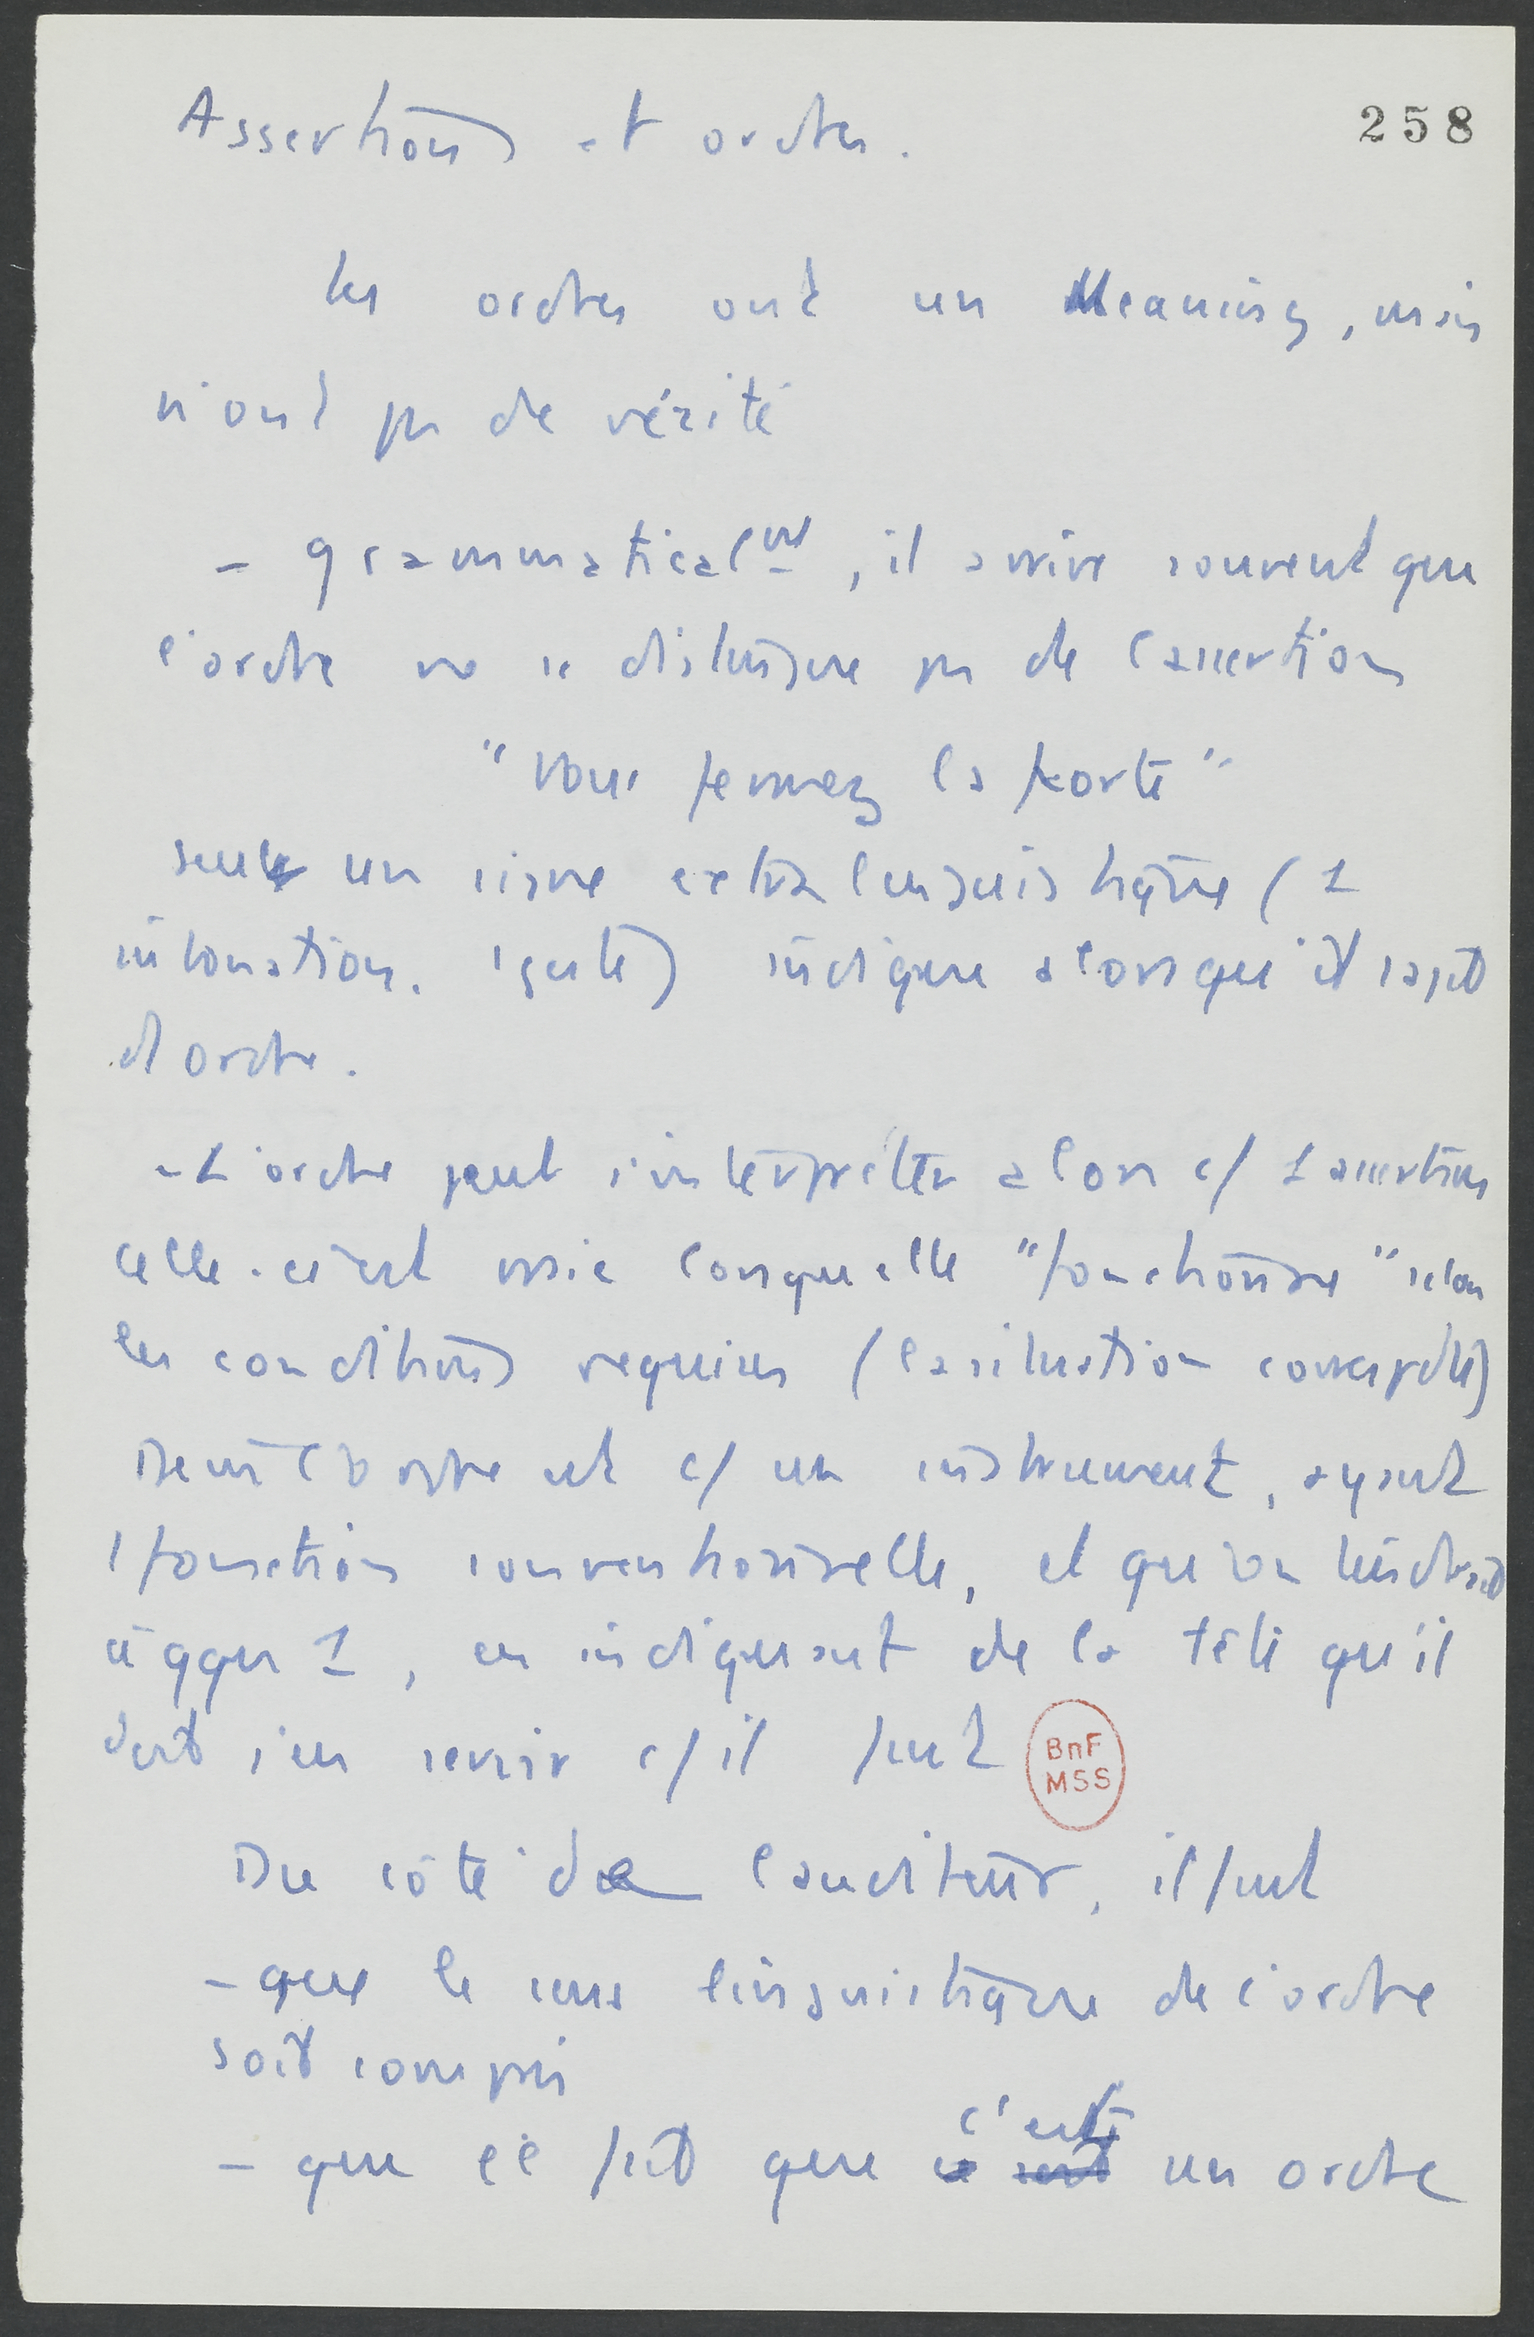 Assertions et ordres.
258
les ordres ont un Meaning, mais
n'ont pas de vérité
- grammaticalmt, il arrive souvent que
l'ordre ne se distingue pas de l'assertion
"Vous fermez la porte"
seul un signe extralinguistique (1
intonation. 1 geste) indique alors qu'il s'agit
d'ordre.
- L'ordre peut s'interpréter alors c/ 1 assertion
celle-ci est vraie lorsqu'elle "fonctionne" selon
les conditions requises (la situation correspdte)
ordre est c/ un instrument, ayant
1 fonction conventionnelle, et qu'on tiendrait
à qqn 1, en indiquant de la tête qu'il
doit s'en servir c/ il faut
BnF
MSS
Du côté de l'auditeur, il faut
- que le sens linguistique de l'ordre
soit compris
c'est
- que le fait que ce soit un ordre